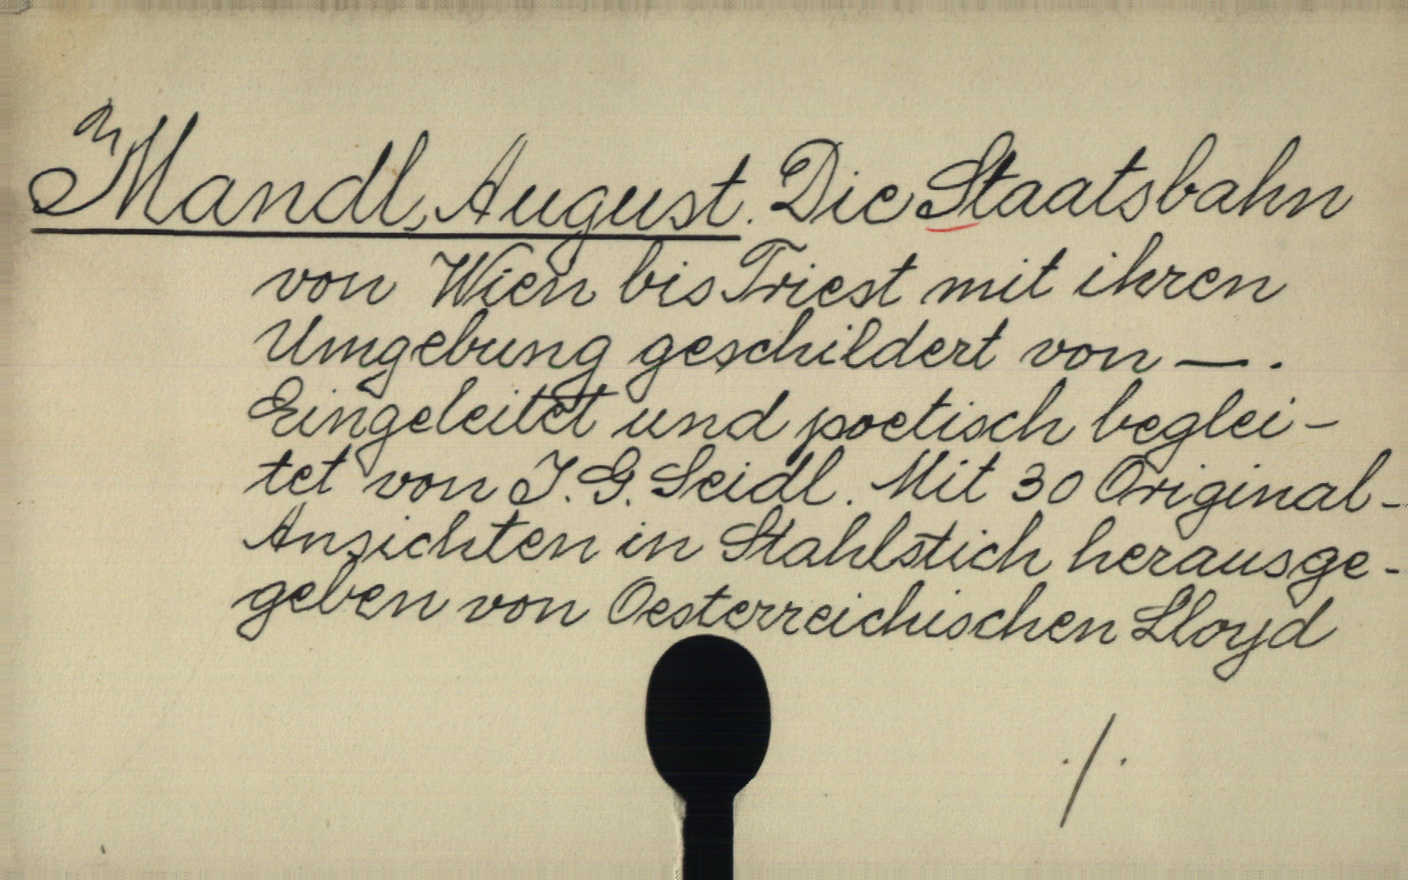 Mandl, August. Die Staatsbahn
von Wien bis Triest mit ihren
Umgebung geschildert von —.
Eingeleitet und poetisch beglei-
tet von J. G. Seidl. Mit 30 Original-
Ansichten in Stahlstich herausge-
geben von Oesterreichischen Lloyd
./.